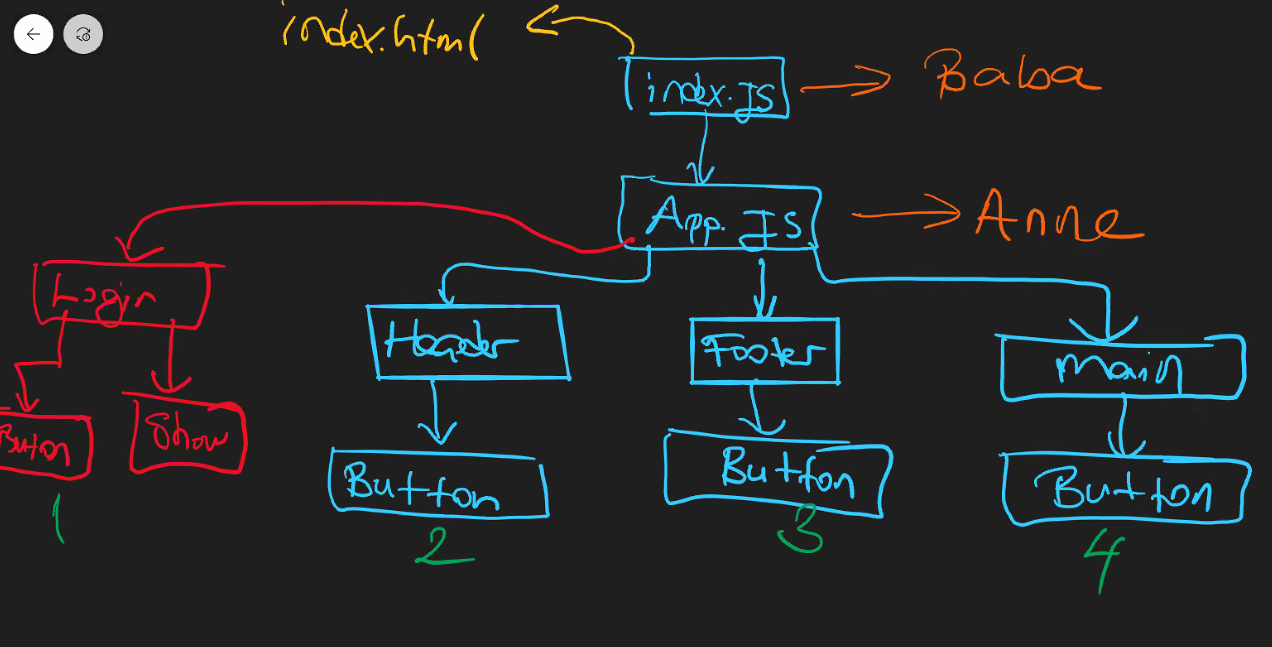 index.html
index.JS
Baba
App.JS
Anne
Login
Header
Footer
main
Buton
Show
Button
Button
Button
1
2
3
4